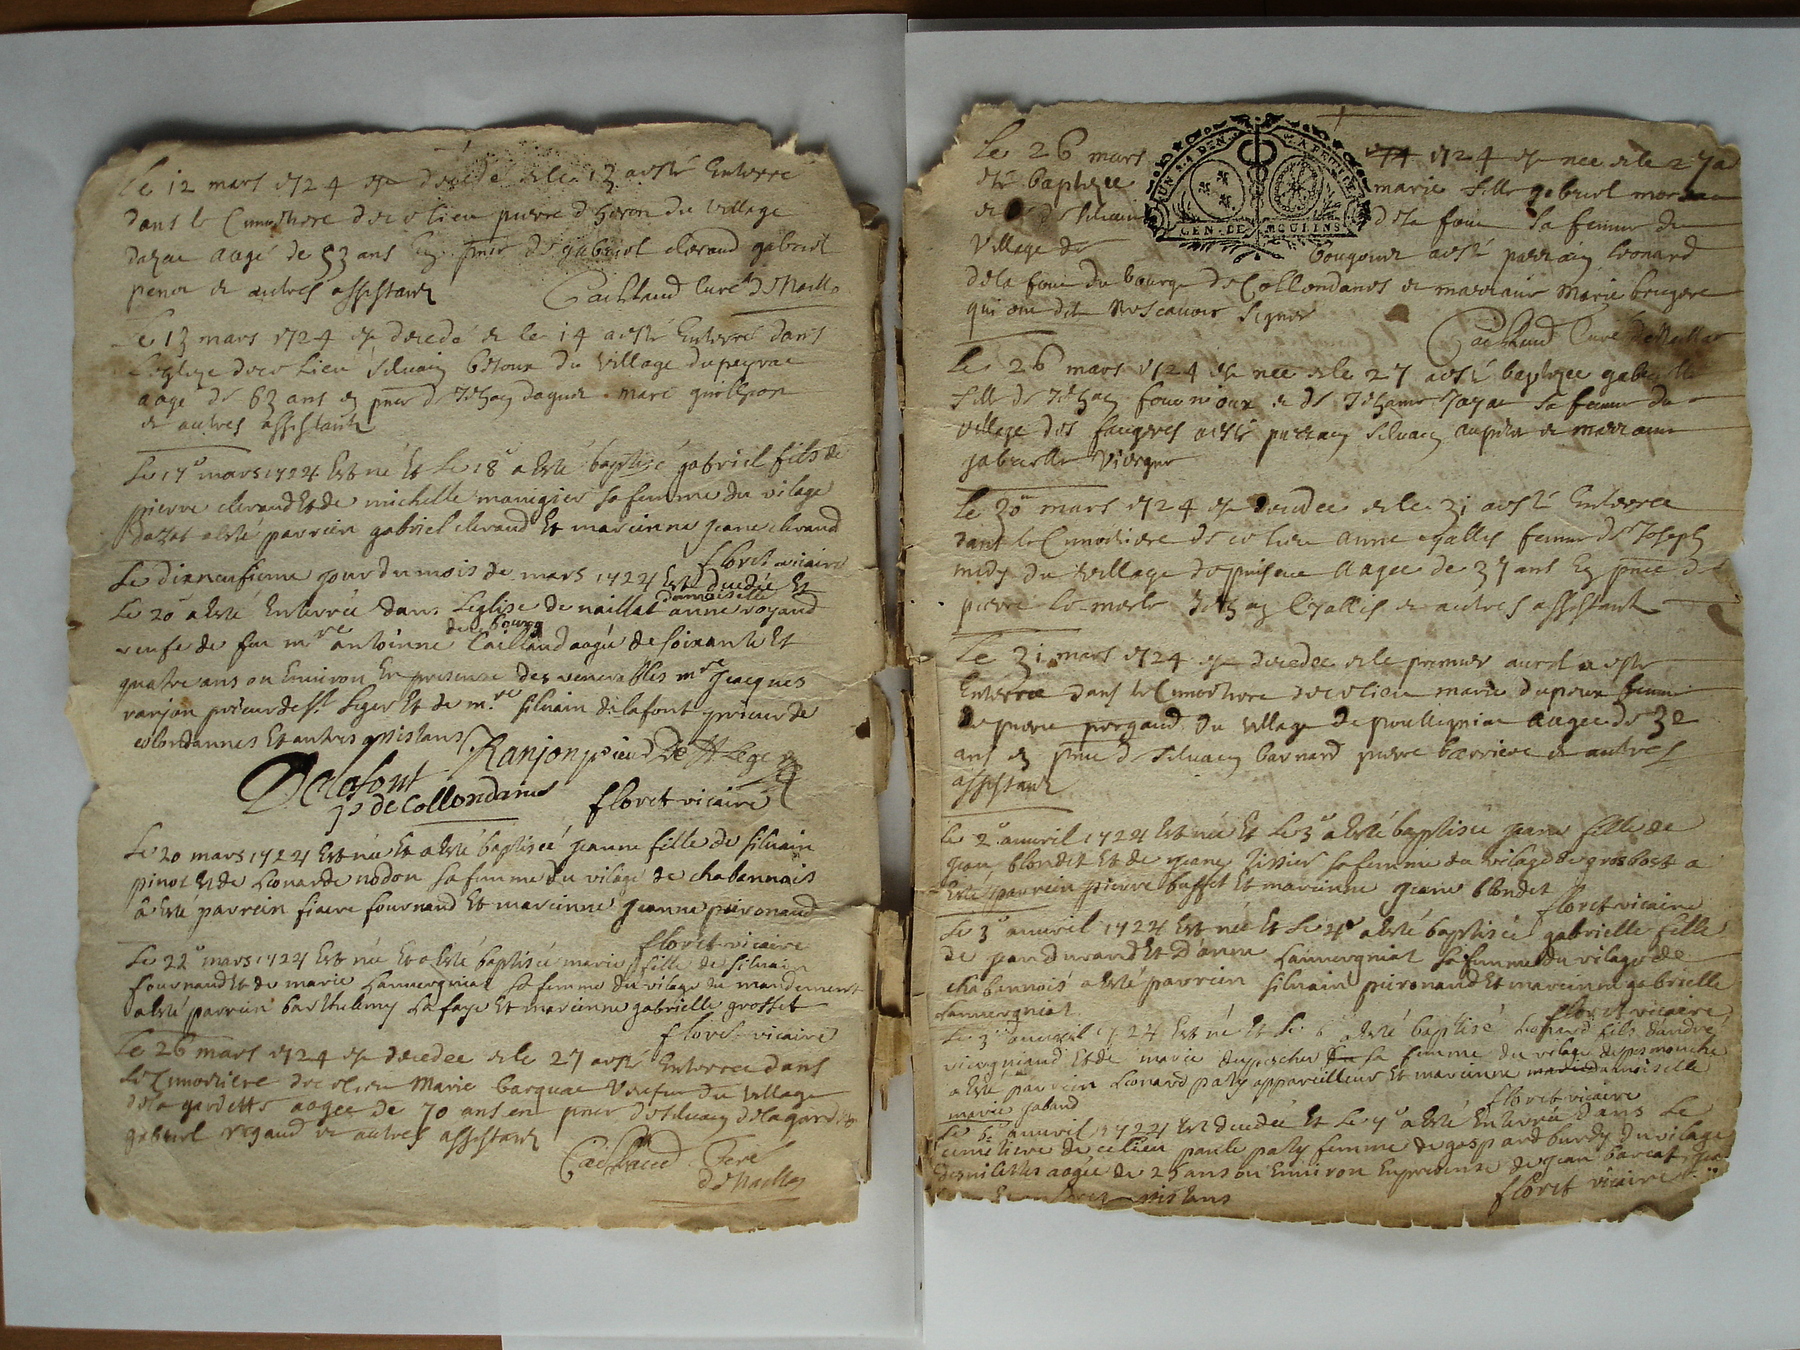 Le 12 mars 1724 est decedé et le 13 a esté Enterré
dans le Cimethiere de ce lieu pierre du village
aagé de 53 ans En pnce de gabriel cleraud gabriel
penot et autres assistants Cachaud Curé de Naillat
Le 13 mars 1724 est decedé et le 14 a esté Enterré dans
L'eglize de ce Lieu Silvain betoux du village dupeyrac
aagé de 63 ans en pnce de Jehan daguet marc
et autres assistants
Le 17e mars 1724 Est né Et Le 18e a Esté baptisé gabriel fils de
pierre cleraud Et de michelle manegier sa femme du vilage
dazat a esté parrein gabriel cleraud Et mareinne jeane cleraud
floret vicaire
Le dixneufieme jour du mois de mars 1724 Est decedée Et
Le 20e a Esté Enterrée dans Leglise de naillat damoiselle anne royaud
veufe de feu mre antoinne Cailland de ce bourg aagée de soixante Et
quatre ans ou Environ En presence des venerables mre Jacques
ranjon prieur de st Leger Et de mre silvain delafont prieur de
colondannes Et autres assistans Ranjon prieur De St Leger
Delafont
pr de Collondanes floret vicaire
Le 20 mars 1724 Est née Et a Esté baptisée jeanne fille de silvain
pinot Et de Leonarde nodon sa femme du vilage de chabannais
a Esté parrein fiacre fournaud Et mareinne jeanne peironaud
floret vicaire
Le 22e mars 1724 Est née Et a Esté baptisée marie fille de silvain
fournaud Et de marie Lannergniat sa femme du vilage du mandement
a Esté parrein barthelemy Lafaye Et mareinne gabrielle grosset
floret vicaire
Le 26 mars 1724 est decedée et le 27 a esté Enterrée dans
Le Cimethiere de ce lieu Marie barquac Veufve du village
de la gardette aagée de 70 ans en pnce de Silvain delagardette
gabriel et autres assistants
Cachaud Curé
de Naillat
Le 26 mars 1724 est née et le 27 a
UN 4 A DEN LA FEUILLE
GEN DE MOULINS
été baptizee marie fille gabriel moreau
et de Silvaine dela foux sa femme du
Village de bougoueix a esté parrain leonard
dela foux du bourg de Collondanes et marraine marie brugere
qui ont dit ne scavoir signer
Cachaud Curé de Naillat
Le 26 mars 1724 est née et le 27 a esté baptizee gabrielle
fille de Jehan fournioux et de Jehanne sa femme du
village des faugeres a esté parrain Silvain et marraine
gabrielle Viergne
Le 30 mars 1724 est decedée et le 31 a esté Enterrée
dans le Cimethiere de ce lieu anne egallis femme de Joseph
midy du village de puiseux aagée de 37 ans En pnce de
pierre le merle Jehan Egallis et autres assistants
Le 31 mars 1724 est decedée et le premier avril a esté
Enterrée dans le Cimethiere de ce lieu marie dupeux femme
de pierre pergaud du village de aagée de 32
ans en pnce de Silvain barnard pierre barriere et autres
assistants
Le 2e auvril 1724 Est née Et Le 3e a Esté baptisée jeane fille de
jean blondet Et de jeane tissier sa femme du vilage de grosbost a
Esté parrein pierre buffet Et mareinne jeane blondet
floret vicaire
Le 3e auvril 1724 Est née Et Le 4e a Esté baptisée gabrielle fille
de jean durand Et D'anne Lannergniat sa femme du vilage de
chabannois a esté parrein silvain peironaud Et mareinne gabrielle
Lannergniat floret vicaire
Le 3e auvril 1724 Est né Et Le a Esté baptisé Leonard fils dandré
viergniaud Et de marie dupescher sa femme du vilage de puismouche
a Esté parrein Leonard paty appareilleur Et mareinne damoiselle
marie jabaud floret vicaire
Le 5e auvril 1724 Est decedée Et Le a Esté Enterrée dans Le
cimetiere de ce lieu paule paty femme de gaspard burdy du vilage
des nilettes aagée de 25 ans ou Environ En presence de jean barcat
assistans floret vicaire